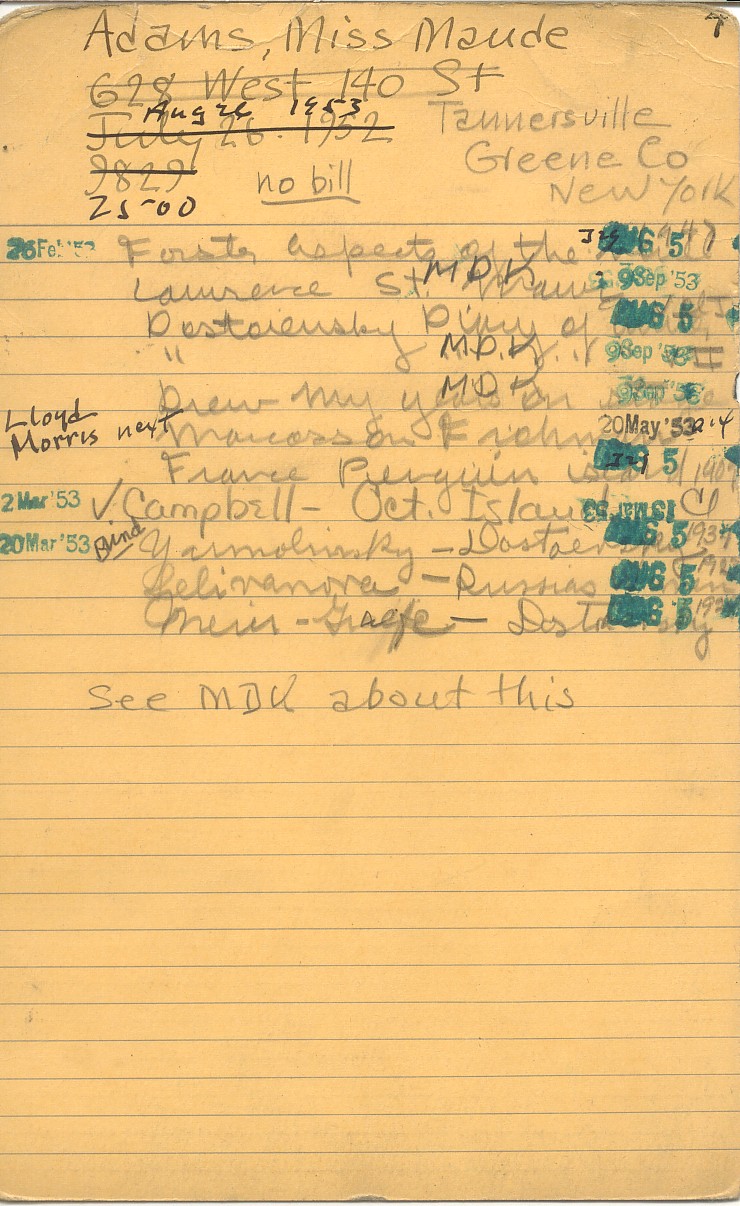 Adams, Miss Maude
628 West 140 St
Aug 26 1953
July 26. 1952
Tannersville
9829
Greene Co
no bill
New York
25-00
26 Feb '53 Forster Aspects of the AUG 5
Lawrence St. Mawr MDK 9 Sep '53
Dostoievsky Diary of AUG 5
" MDK " 9 Sep '53 II
Drew My years on MDK
Lloyd
Morris next Marcosson Frohman 20 May '53
France Penguin island AUG 5
2 Mar '53 √ Campbell - Oct. Island 13 Mar 53
20 Mar '53 Bind Yarmolinsky - Dostoevsky AUG 5
Selivanova - Russias AUG 5
Meier-Graefe - Dostoevsky AUG 5
See MDK about this